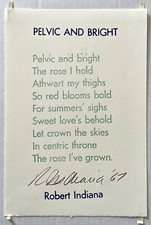 PELVIC AND BRIGHT
Pelvic and bright
The rose I hold
Athwart my thighs
So red blooms bold
For summers' sighs
Sweet love's behold
Let crown the skies
In centric throne
The rose I've grown.
R Indiana '67
Robert Indiana